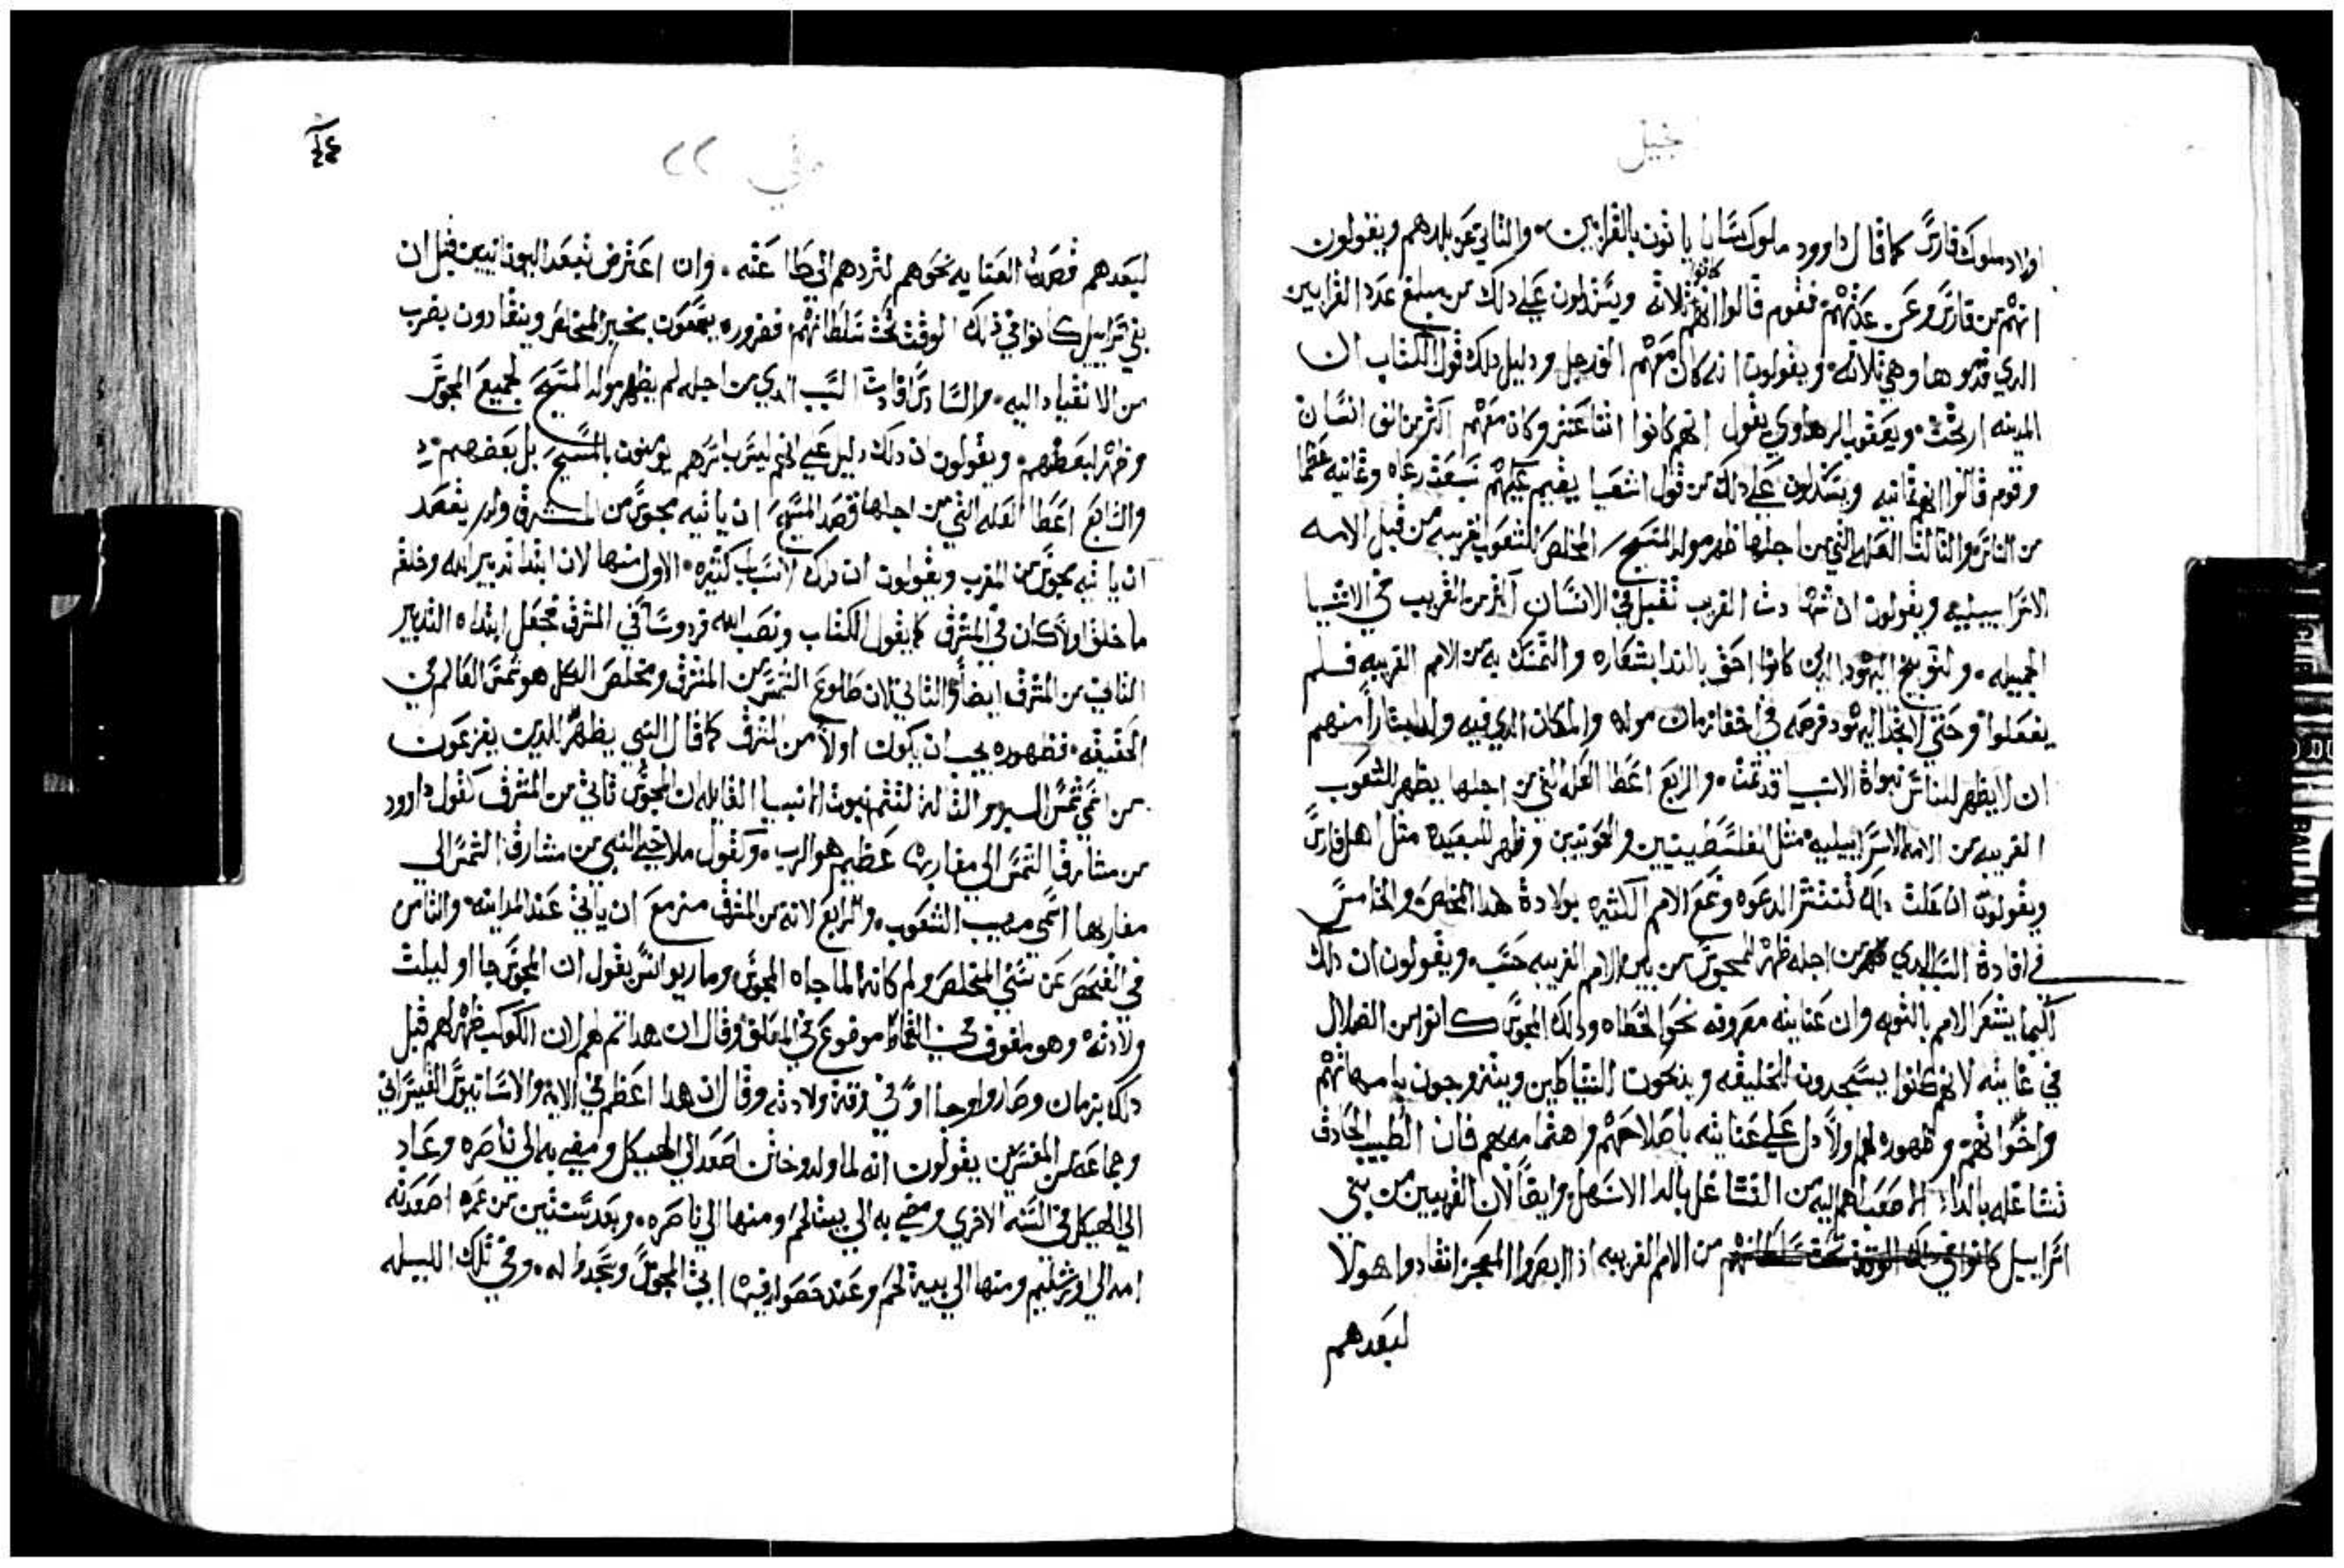 جيل
اولاد ملوك فارس كما قال داوود ملوك سابا ياتون بالقرابين والثاني عن بلدهم ويقولون
انهم من فارس وعن عدتهم فقوم قالوا انهم كانوا ثلاثه ويستدلون علي دلك من مبلغ عدد القرابين
الدي قدموها وهي ثلاثه ويقولون انه كان معهم الف رجل ودليل دلك قول الكتاب ان
المدينه ارتجت ويعقوب الرهاوي يقول انهم كانوا اثنا عشر وكان معهم اكثر من الف انسان
وقوم قالوا انهم ثمانيه ويستدلون علي دلك من قول اشعيا يقيم عليهم سبعت رعاه وثمانيه عظما
من الناس والثالث العله التي من اجلها ظهر مولد المسيح المخلص للشعوب الغريبه من قبل الامه
الاسراييليه ويقولون ان شهادت الغريب تقبل في الانسان اكثر من القريب في الاشيا
الجميله ولتوبيخ اليهود الدين كانوا احق بالندا بشعاره والتمسك به من الامم الغريبه فلم
يفعلوا وحتي لا يجد اليهود فرصه في اخفا زمان مولده والمكان الدي فيه ولد ايتارا منهم
ان لا يظهر للناس نبواة الانبيا قد تمت والرابع اعطا العله التي من اجلها يظهر للشعوب
القريبه من الامه الاسراييليه مثل الفلسطينيين والحويين وظهر للبعيده مثل اهل فارس
ويقولون ان علت دلك لتنتشر الدعوه وتمع الامم الكثيره بولادة هدا المخلص والخامس
في افادة السبب الدي من اجله ظهر للمجوس من بين الامم الغريبه حسب ويقولون ان دلك
كيما يشعر الامم بالتوبه وان عنايته مصروفه نحو الخطاه ودلك المجوس كانوا من الضلال
في غايته لانهم كانوا يسجدون للخليقه وينحون الشياطين ويتزوجون بامهاتهم
واخواتهم وظهوره لهم اولا دل علي عنايته باصلاحهم واهتمامه بهم فان الطبيب الحادق
تشاغله بالداء الاصعب اهم اليه من التشاغل بالدا الاسهل وايضا لان القريبين من بني
اسراييل من الامم الغريبه ادا ابصروا المعجز انقادوا هولا
لبعدهم
متي ٢٢
لبعدهم فصرف العنايه نحوهم لتردهم الي طاعته وان اعترض ببعد اليونانيين قيل ان
بني اسراييل كانوا في دلك الوقت تحت سلطانهم فضروره يسمعون بخبر المخلص وينقادون بضرب
من الانقياد اليه والسادس افادت السبب الدي من اجله لم يظهر مولد المسيح لجميع المجوس
وظهر لبعضهم ويقولون ان دلك دليل علي انهم ليس باسرهم يومنون بالمسيح بل بعضهم
والسابع اعطا العله التي من اجلها قصد المسيح ان ياتيه مجوس من المشرق ولم يقصد
ان ياتيه مجوس من المغرب ويقولون ان دلك لاسباب كثيره الاول منها لان ابتدا تدبير الله وخلقه
ما خلق اولا كان في المشرق كما يقول الكتاب ونصب الله فردوسا في المشرق فجعل ابتداه التدبير
الثاني من المشرق ايضا والثاني لان طلوع الشمس من المشرق ومخلص الكل هو شمس العالم في
الحقيقه فظهوره يجب ان يكون اولا من المشرق كما قال النبي يظهر للدين يفزعون
من اسمي شمس البر والثالث لتتم نبوت الانبيا القايله ان المجوس تاتي من المشرق كقول داوود
من مشارق الشمس الي مغاربها عظيم هو الرب وكقول ملاخي النبي من مشارق الشمس الي
مغاربها اسمي مهيب الشعوب والرابع لانه من المشرق مزمع ان ياتي عند المداينه والثامن
في الفحص عن سني المخلص وكم كانت لما جاه المجوس وماريوانس يقول ان المجوس جا اوليلت
ولادته وهو ملفوف في القماط موضوع في المعلف وقال ان هدا تم لهم لان الكوكب ظهر لهم قبل
دلك بزمان وصاروا وجااوا في وقت ولادته وقال ان هدا اعظم في الايه والاسابيوس القيسراني
وجماعه من المفسرين يقولون انه لما ولد وختن اصعد الي الهيكل ومضي به الي ناصره وعاد
الي الهيكل في السنه الاخري ومضي به الي بيت لحم ومنها الي ناصره وبعد سنتين من عمره اصعدته
امه الي اورشليم ومنها الي بيت لحم وعند حصوله فيها اتي المجوس وسجدوا له وفي تلك الليله